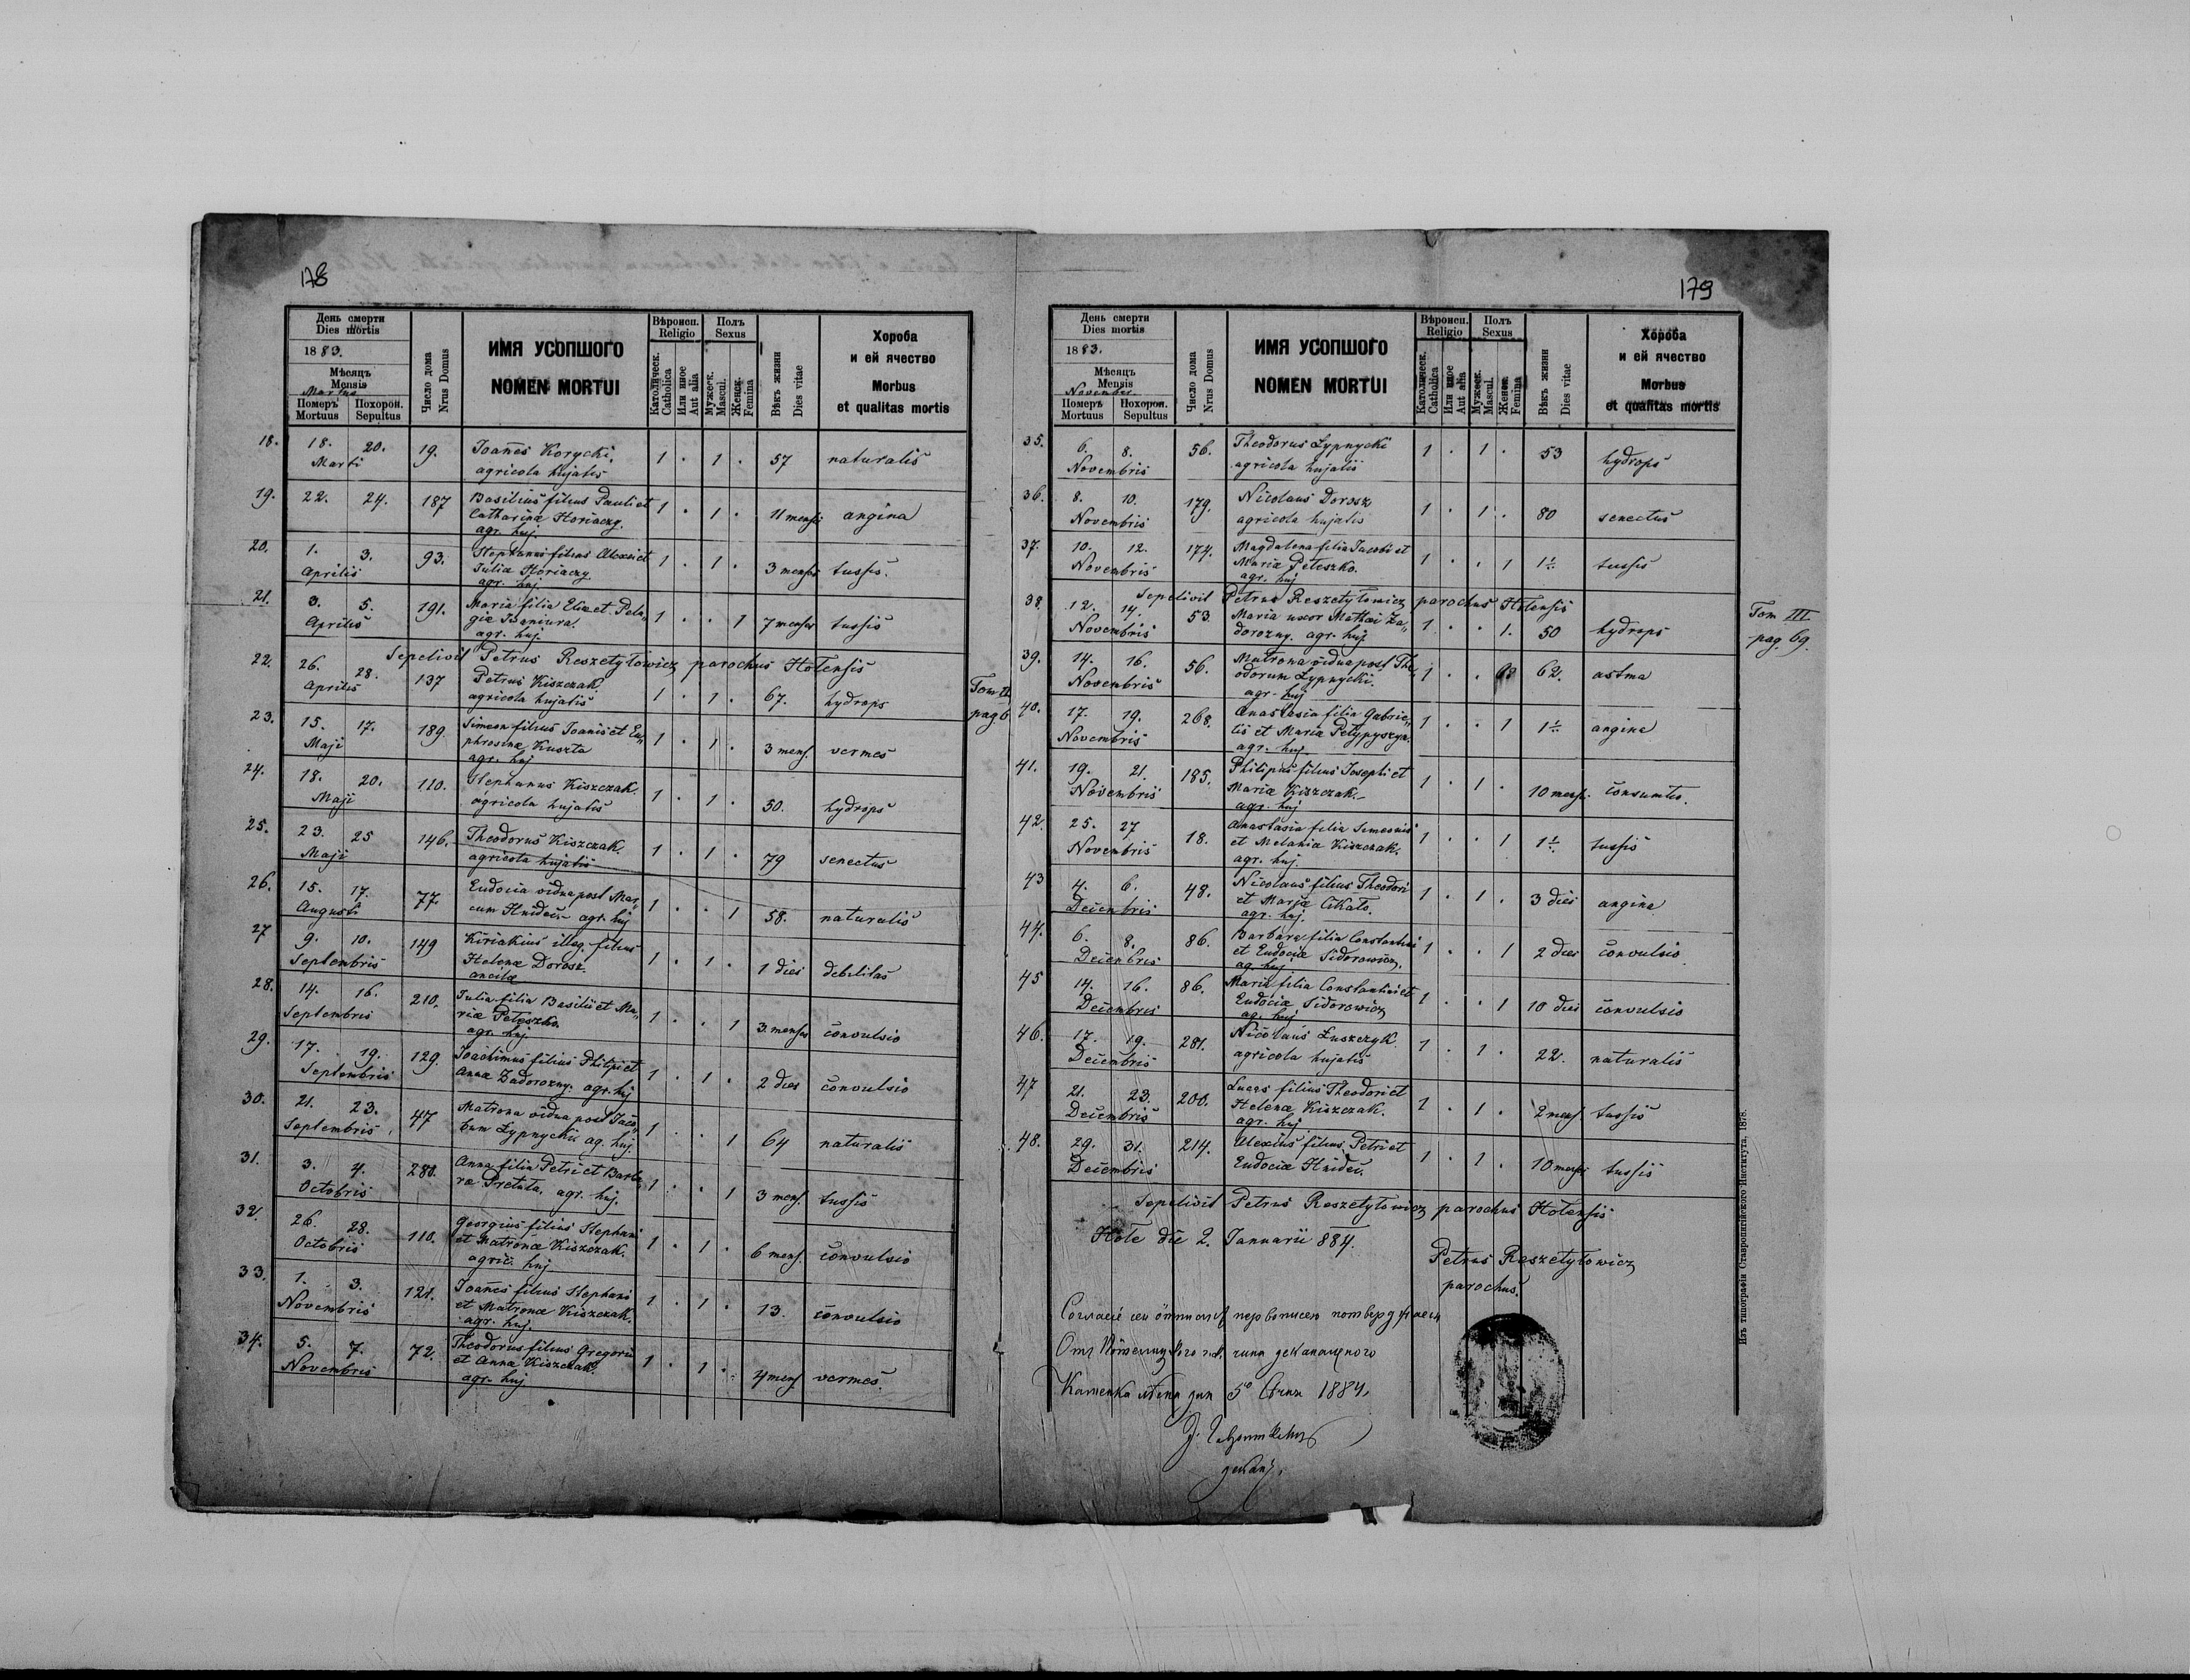 178
День смерти
Dies mortis
1883.
Мѣсяцъ
Mensis
Martius
Померъ Похорон.
Mortuus Sepultus
Число дома
Nrus Domus
ИМЯ УСОПШОГО
NOMEN MORTUI
Вѣроисп.
Religio
Католическ.
Catholica
Или иное
Aut alia
Полъ
Sexus
Мужеск.
Mascul.
Женск.
Femina
Вѣкъ жизни
Dies vitae
Хороба
и ей ячество
Morbus
et qualitas mortis
18. 18. 20. 19. Joannes Korycki, 1 . 1 . 57 naturalis
Marti agricola hujatis
19. 22. 24. 187 Basilius filius Pauli et 1 . 1 . 11 mensis angina
Catharinæ Horiaczy.
agr. huj.
20. 1. 3. 93. Stephanus filius Alexii et 1 . 1 . 3 mensis tussis.
Aprilis Julia Horiaczy
agr. huj
21. 3. 5. 191. Maria filia Eliæ et Pela„ 1 . . 1 7 menses tussis
Aprilis giæ Baniura.
agr. huj.
Sepelivit Petrus Reszetyłowicz parochus Hotensis
22. 26. 28. 137 Petrus Kiszczak. 1 . 1 . 67. hydrops
Aprilis agricola hujatis
Tom II
pag 6
23. 15. 17. 189 Simeon filius Joanis et Eu„ 1 . 1 . 3 mens. vermes
Maji phrosinæ Kuszta
agr. huj
24. 18. 20. 110. Stephanus Kiszczak. 1 . 1 . 50. hydrops
Maji agricola hujatis
25. 23. 25 146. Theodorus Kiszczak. 1 . 1 . 79 senectus
Maji agricola hujatis
26. 15. 17. 77 Eudocia vidua post Mar„ 1 . . 1 58. naturalis
Augusti cum Hnideć – agr. huj
27 9. 10. 149 Kiriakius illeg. filius 1 . 1 . 1 dies debilitas
Septembris Helenæ Dorosz.
ancilæ
28. 14. 16. 210. Julia filia Basilii et Ma„ 1 . . 1 3 menses convulsio
Septembris riæ Peteszko.
agr. huj
29. 17. 19. 129. Joachimus filius Philipi et 1 . 1 . 2 dies convulsio
Septembris Annæ Zadorozny. agr. huj
30. 21. 23. 47 Matrona vidua post Jaco„ 1 . . 1 64 naturalis
Septembris bum Łypnycki ag. huj.
31. 3. 4. 281. Anna filia Petri et Barba„ 1 . . 1 3 mens. tussis
Octobris ræ Pretuta. agr. huj.
32. 26. 28. 110. Georgius filius Stephani 1 . 1 . 6 mens. convulsio
Octobris et Matronæ Kiszczak.
agric. huj
33. 1. 3. 121. Joanes filius Stephani 1 . 1 . 13. convulsio
Novembris et Matronæ Kiszczak.
agr. huj.
34. 5. 7. 72. Theodorus filius Gregorii 1 . 1 . 4 mens. vermes.
Novembris et Annæ Kiszczak.
agr. huj
179
День смерти
Dies mortis
1883.
Мѣсяцъ
Mensis
November.
Померъ Похорон.
Mortuus Sepultus
Число дома
Nrus Domus
ИМЯ УСОПШОГО
NOMEN MORTUI
Вѣроисп.
Religio
Католическ.
Catholica
Или иное
Aut alia
Полъ
Sexus
Мужеск.
Mascul.
Женск.
Femina
Вѣкъ жизни
Dies vitae
Хороба
и ей ячество
Morbus
et qualitas mortis
35. 6. 8. 56. Theodorus Łypnycki 1 . 1 . 53 hydrops
Novembris agricola hujatis
36. 8. 10. 179. Nicolaus Dorosz 1 . 1 . 80 senectus
Novembris agricola hujatis
37. 10. 12. 174. Magdalena filia Jacobi et 1 . . 1 1½ tussis
Novembris Mariæ Peteszko.
agr. huj
Sepelivit Petrus Reszetyłowicz parochus Hotensis
38. 12. 14. 53. Maria uxor Mathæi Za„ 1 . . 1. 50 hydrops
Novembris dorozny. agr. huj
Tom III
pag. 69.
39. 14. 16. 56. Matrona vidua post The„ 1 . . 62. astma
Novembris odorum Łypnycki.
agr. huj
40. 17. 19. 268. Anastasia filia Gabrie„ 1 . . 1 1½ angina
Novembris lis et Mariæ Petypyszyn.
agr. huj.
41. 19. 21. 185. Philipus filius Josephi et 1 . 1 . 10 mens. consumtio.
Novembris Mariæ Kiszczak.–
agr. huj
42. 25. 27 18. Anastasia filia Simeonis 1 . . 1 1½ tussis
Novembris et Melaniæ Kiszczak.
agr. huj.
43 4. 6. 48. Nicolaus filius Theodori 1 . 1 . 3 dies angina
Decembris et Mariæ Cikało.
agr. huj.
44. 6. 8. 86. Barbara filia Constantini 1 . . 1 2 dies convulsio
Decembris et Eudociæ Sidorowicz.
ag. huj
45 14. 16. 86. Maria filia Constantini et 1 . . 1 10 dies convulsio
Decembris Eudociæ Sidorowicz
ag. huj
46. 17. 19. 281. Nicolaus Łuszczyk. 1 . 1 . 22. naturalis
Decembris agricola hujatis
47 21. 23. 200. Lucas filius Theodori et 1 . 1 . 2 mens. tussis
Decembris Helenæ Kiszczak.
agr. huj
48. 29. 31. 214. Alexius filius Petri et 1 . 1 . 10 mensis tussis
Decembris Eudociæ Hnideć.
Sepelivit Petrus Reszetyłowicz parochus Hotensis
Hole die 2. Januarii 884.
Petrus Reszetyłowicz
parochus.
Согласіе сеи отписи съ первописею потверджаеся
Отъ
Каменка дня 5º 1884.
деканъ.
Изъ типографіи Ставропигійского Института. 1878.